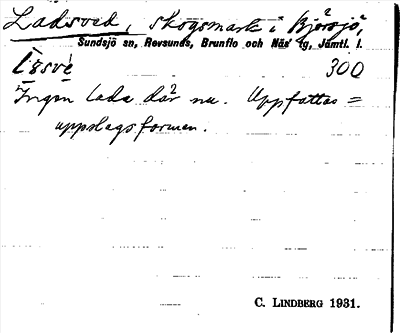 Ladsved, skogsmark i Björsjö,
Sundsjö sn, Revsunds, Brunflo och Näs' tg, Jämtl. l.
300
Ingen lada där nu. Uppfattas =
uppslagsformen.
C. LINDBERG 1931.